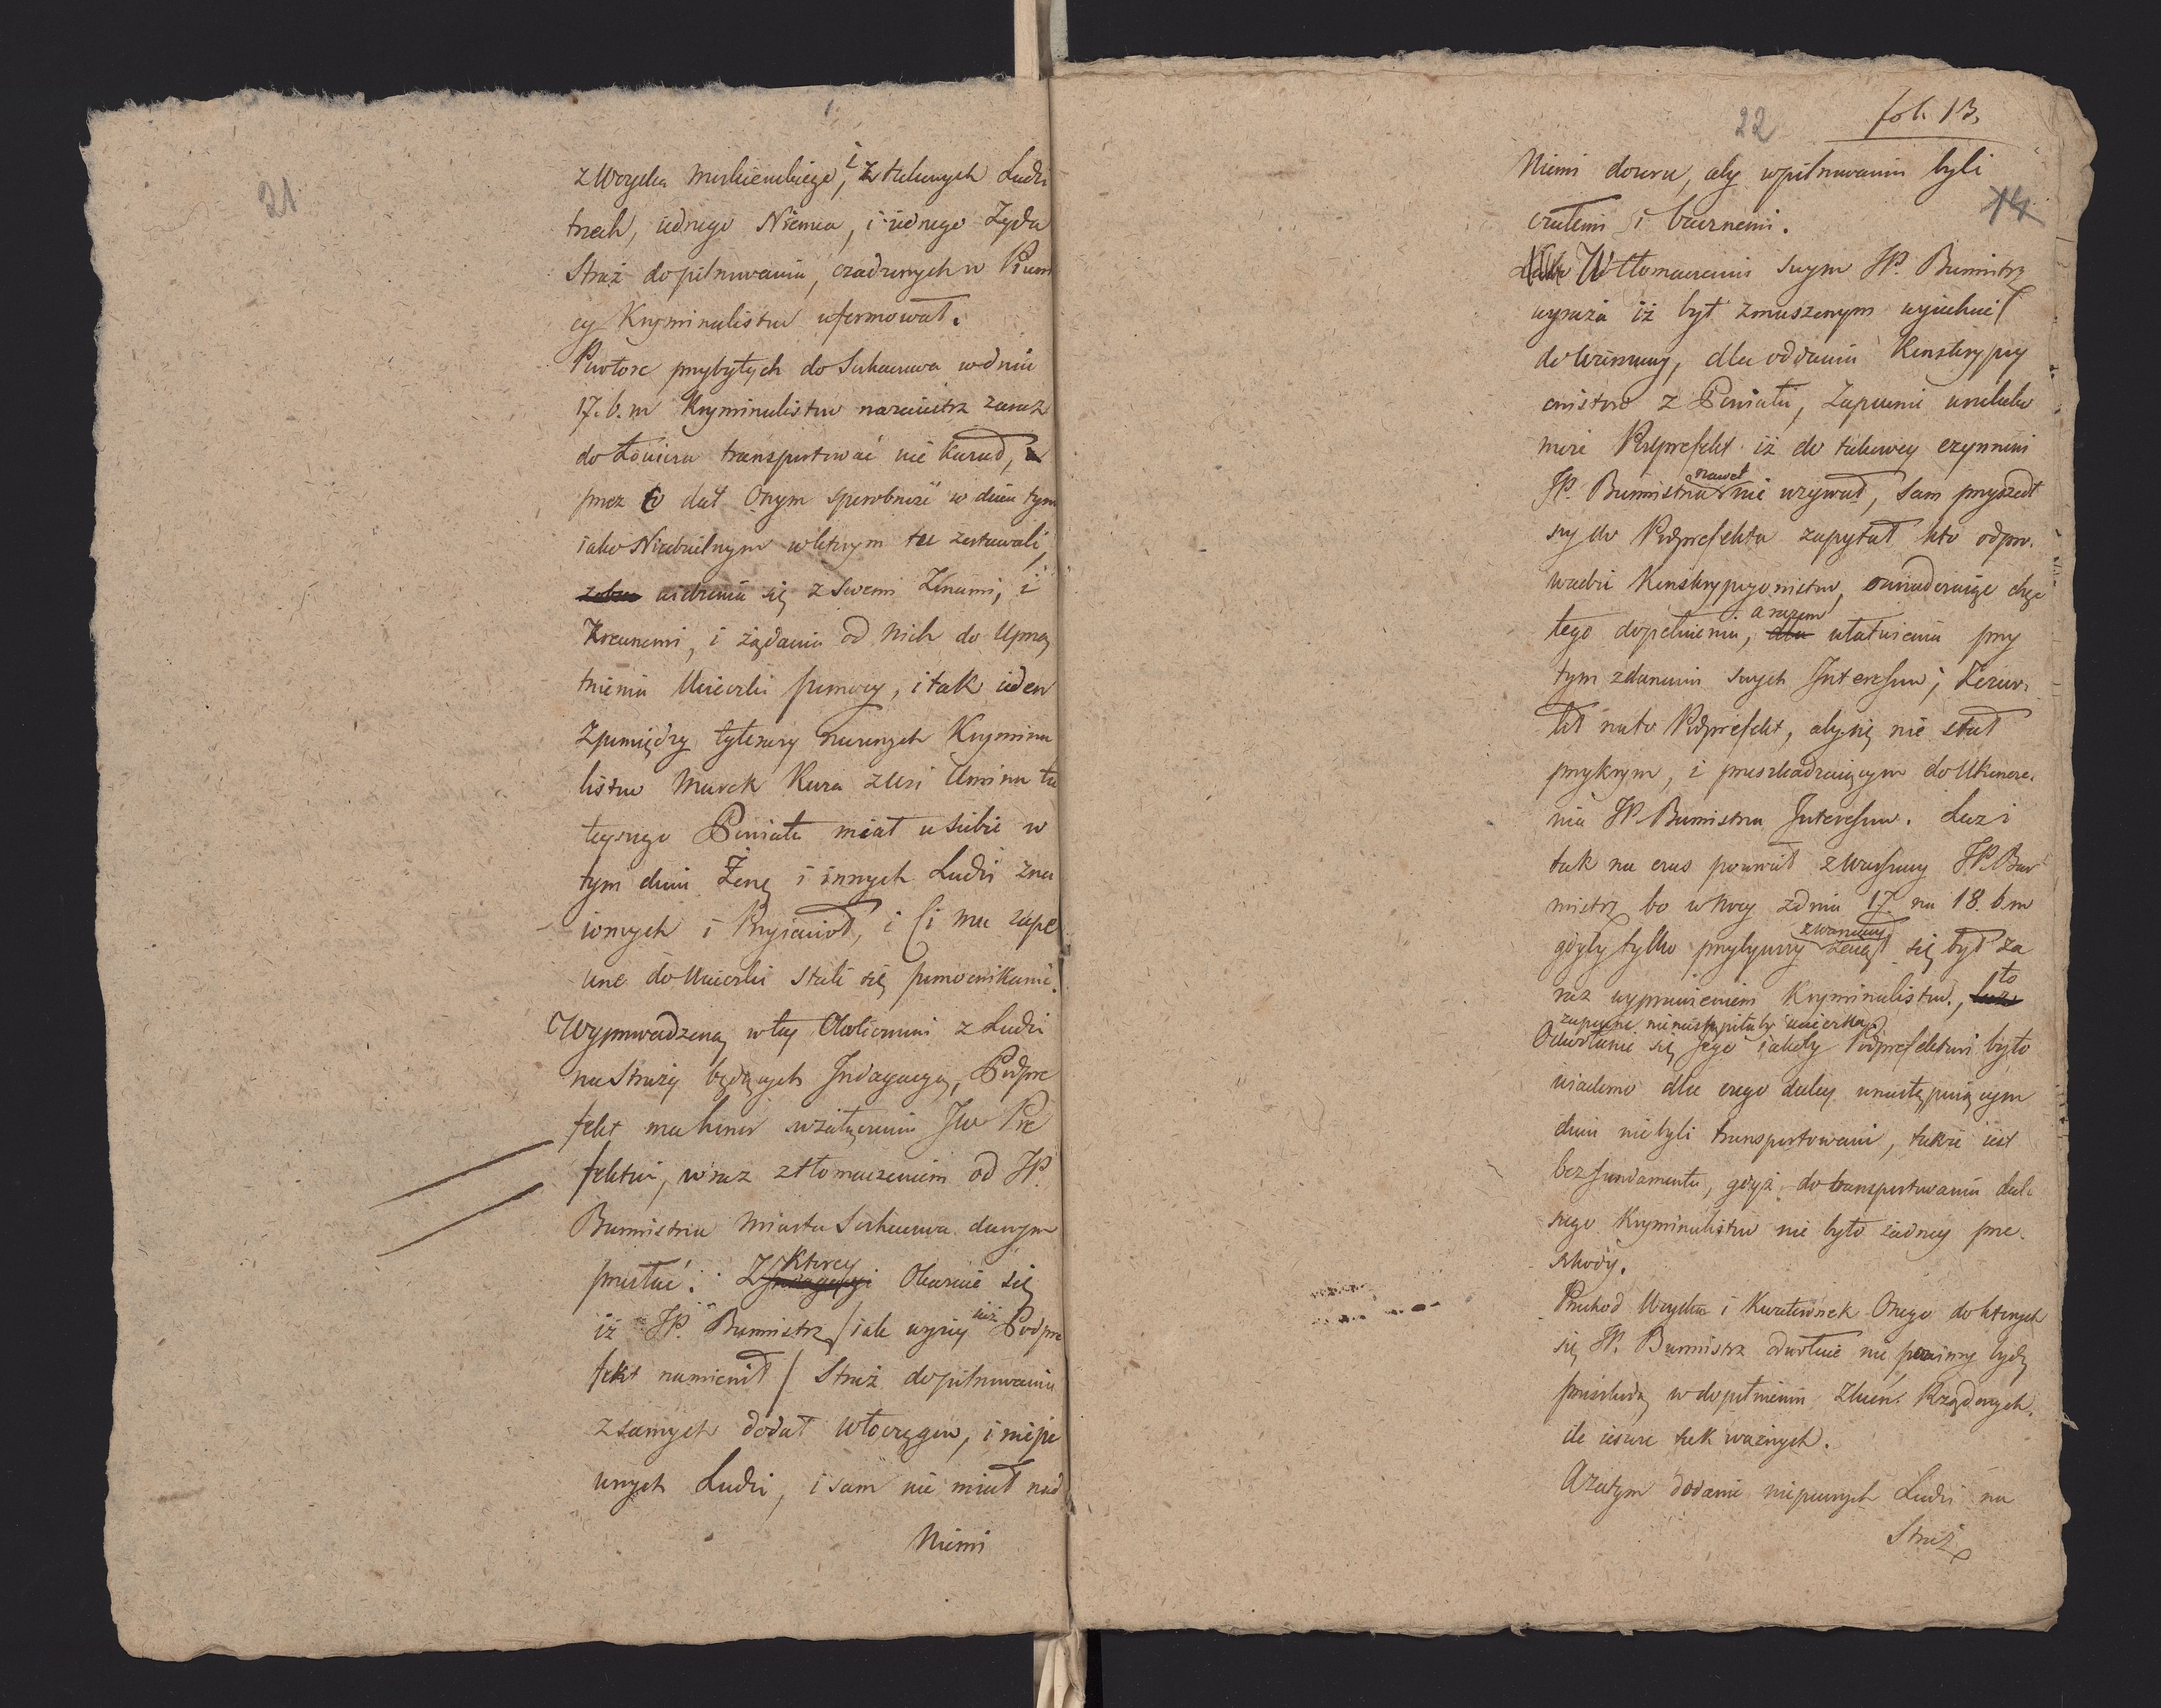 21
z Woyska Moskiewskiego, i z takowych Ludzi
trzech, iednego Niemca, i iednego Żyda
Straż do pilnowania, osadzonych w Piwni
cy Kryminalistow uformował.
Powtore przybyłych do Sochaczewa w dniu
17. b. m Kryminalistow Burmistrz zaraz
do Łowicza transportować nie kazał, a
przez to dał Onym sposobność w dniu tym
iako Niedzielnym w ktorym tu zostawali,
widzenia się z Swemi Żonami, i
Krewnemi, i żądania od nich do Uprzą
tnienia Ucieczki pomocy, i tak ieden
Z pomiędzy tyle razy rzeczonych Krymina
listow Marek Kura z Wsi Umina tu
teyszego Powiatu miał u siebie w
tym dniu Żonę i innych Ludzi Zna
iomych i Przyiaciół, i Ci mu zape
wne do Ucieczki stali się pomocnikami.
Wyprowadzoną w tey Okoliczności z Ludzi
na Straży będących Indagacyą, Podpre
fekt ma honor w załączeniu JW Pre
fektowi, wraz z tłomaczeniem od JP.
Burmistrza Miasta Sochaczewa danym
przesłać. Z Indagacyi
ktorey
Okazuie się
iż JP. Burmistrz / iak wyżey iuż Podpre
fekt namienił / Straż do pilnowania
z samych dodał włoczęgow, i niepe
wnych Ludzi, i sam nie miał nad
Niemi
22
fol. 13.
14
Niemi dozoru, aby w pilnowaniu byli
czułemi i bacznemi.
W tłomaczeniu swym JP. Burmistrz
wyraża iż był zmuszonym wyiechać
do Warszawy, dla oddania Konskrypcy
onistow z Powiatu, Zapewnie unikało
może Podprefekt iż do takowey czynności
JP. Burmistrza
nawet
nie wzywał, sam przyszedł
szy do Podprefekta zapytał kto odpro
wadzi Konskrypcyonistow, oświadczaiąc chęć
tego dopełnienia,
a razem
ułatwienia przy
tym zdarzeniu swych Interessow; Zezwo
lił na to Podprefekt, aby się nie stał
przykrym, i przeszkadzaiącym do Ukończe
nia JP. Burmistrza Interessow. Lecz i
tak na czas powrocił z Warszawy JP. Bur
mistrz bo w Nocy z dnia 17. na 18. b. m
gdyby tylko przybywszy
z Warszawy
zaiął się był za
raz wyprawieniem Kryminalistow.,
to
zapewne nie nastąpiłaby ucieczka.
Odwołanie się Jego iakoby Podprefektowi było
wiadomo dla czego daley w następuiącym
dniu niebyli transportowani, także iest
bez fundamentu, gdyż do transportowania dal
szego Kryminalistow nie było żadney prze
szkody.
Przechod Woyska i Kwaterunek Onego do ktorych
się JP. Burmistrz odwołuie nie powinny bydź
przeszkodą w dopełnieniu Zleceń Rządowych,
ile ieszcze tak ważnych.
A zatym dodanie niepewnych Ludzi na
Straż